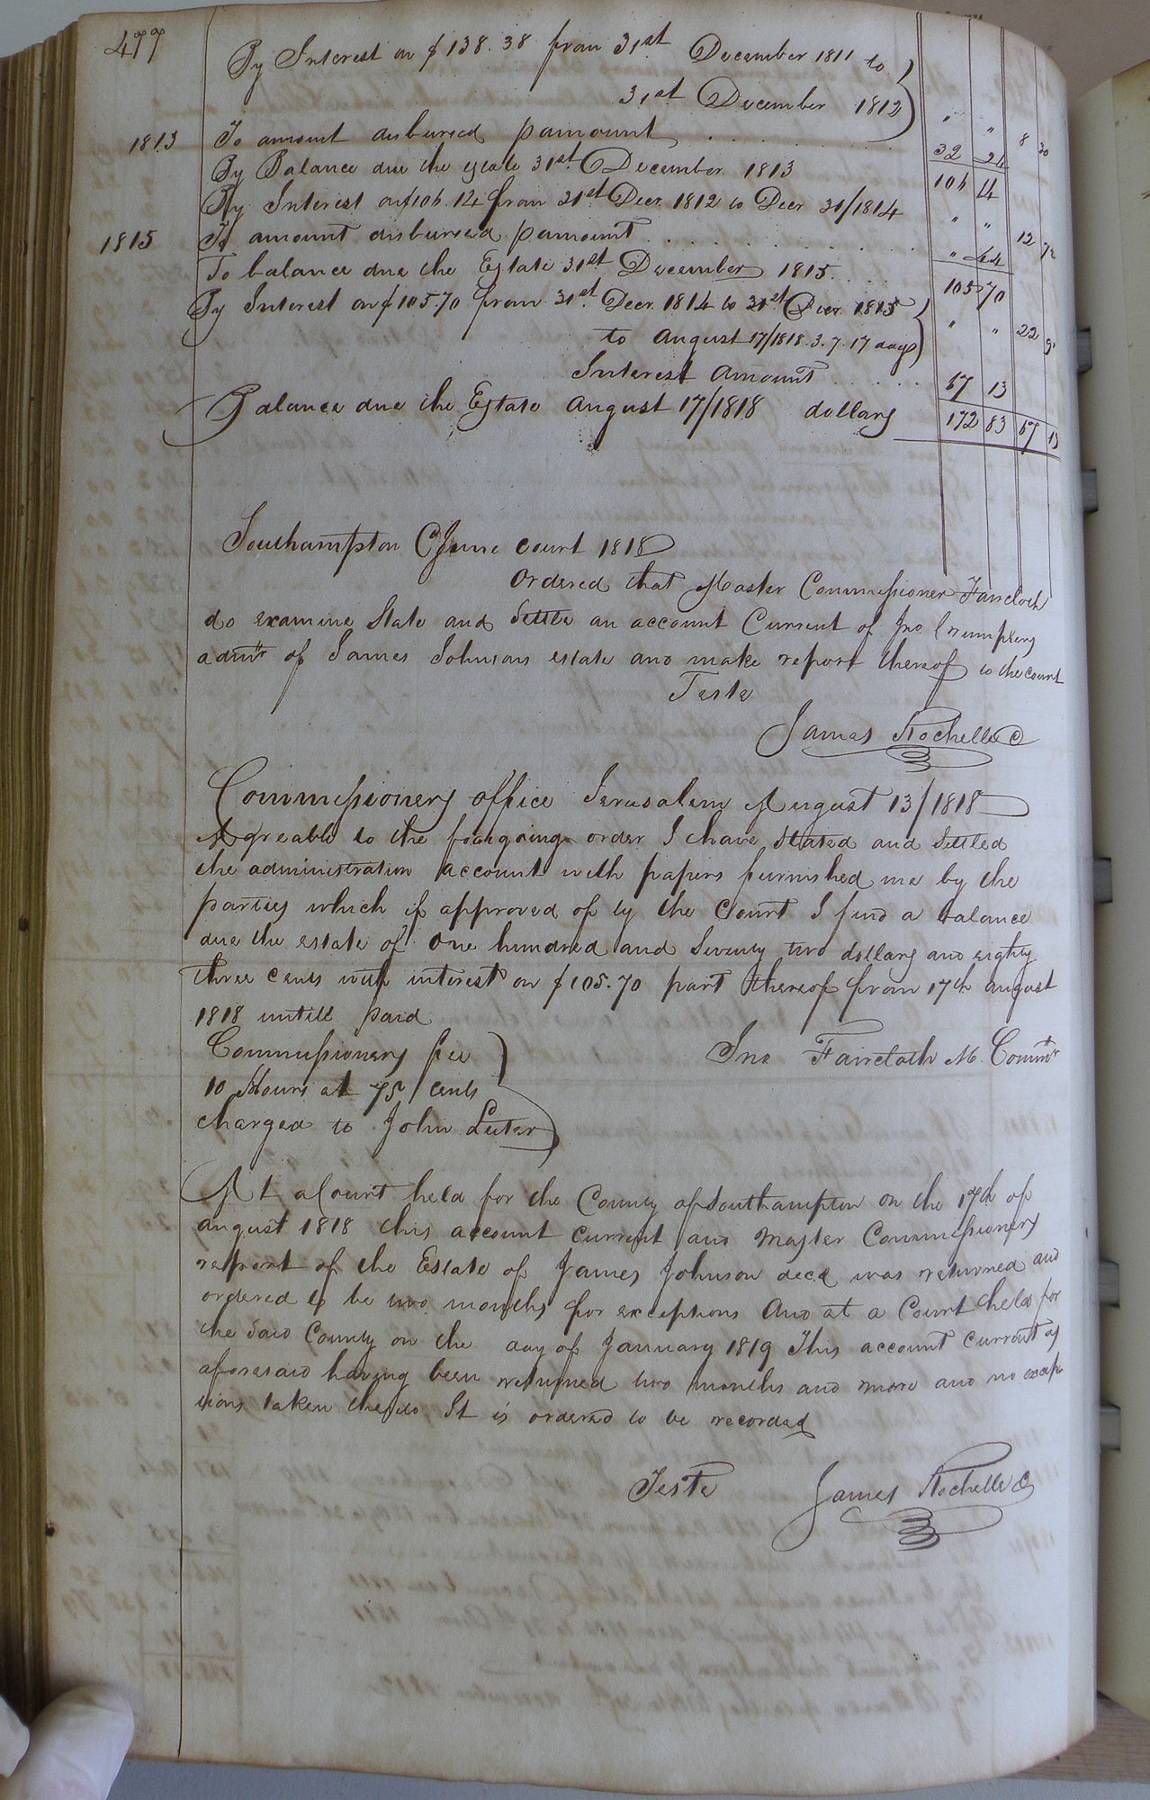 477
By Interest on $138.38 from 31st December 1811 to
31st December 1812 " " 8 30
1813 To amount disbursed p amount 32 24
By Balance due the estate 31st December 1813 106 14
By Interest on $106.14 from 31st Decr. 1812 to Decr 31/1814 " " 12 72
1815 To amount disbursed p amount " 44
To balance due the Estate 31st December 1815 105 70
By Interest on $105.70 from 31st Decr. 1814 to 31st Decr 1815
to August 17/1818. 3. 7. 17 days " " 22
Interest amount 67 13
Balance due the Estate August 17/1818 dollars 172 83 67 13
Southampton C June court 1818
Ordered that Master Commissioner Faircloth
do examine State and Settle an account Current of Jno Crumpler
admr of James Johnsons estate and make report thereof to the court
Teste
James Rochelle C
Commissioners office Jerusalem August 13/1818
Agreable to the foregoing order I have Stated and Settled
the administration account with papers furnished me by the
parties which if approved of by the Court I find a balance
due the estate of one hundred and Seventy two dollars and eighty
three cents with interest on $105.70 part thereof from 17th august
1818 untill paid
Commissioners fee
Jno Faircloth M. Commr
10 Hours at 75 cents
charged to John Luter
At a Court held for the County of Southampton on the 17th of
august 1818 this account current and Master Commissioners
report of the Estate of James Johnson decd was returned and
ordered to be two months for exceptions And at a Court held for
the Said County on the day of January 1819 This account current as
aforesaid having been returned two months and more and no excep
tions taken thereto It is ordered to be recorded
Teste James Rochelle C